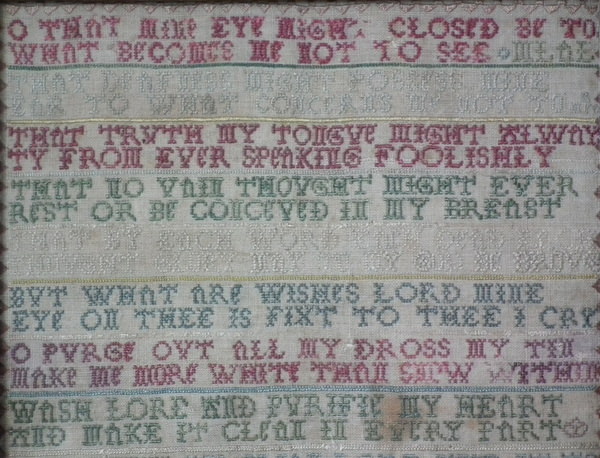 O THAT MINE EYE MIGHT CLOSED BE TO
WHAT BECOMES ME NOT TO SEE
THAT DEAFNES MIGHT POSSESS MINE
EAR TO WHAT CONCERNS ME NOT TO
THAT TRUTH MY TONGUE MIGHT ALWAY
TY FROM EVER SPEAKING FOOLISHLY
THAT NO VAIN THOVGHT MIGHT EVER
REST OR BE CONCEVED IN MY BREAST
THAT BY EACH WORD
BVT WHAT ARE WISHES LORD MINE
EYE ON THEE IS FIXT TO THEE I CRY
O PVRGE OVT ALL MY DROSS MY TIN
MAKE ME MORE WHITE THAN SNOW WITHIN
WASH LORD AND PVRIFIE MY HEART
AND MAKE IT CLEAN IN EVERY PART